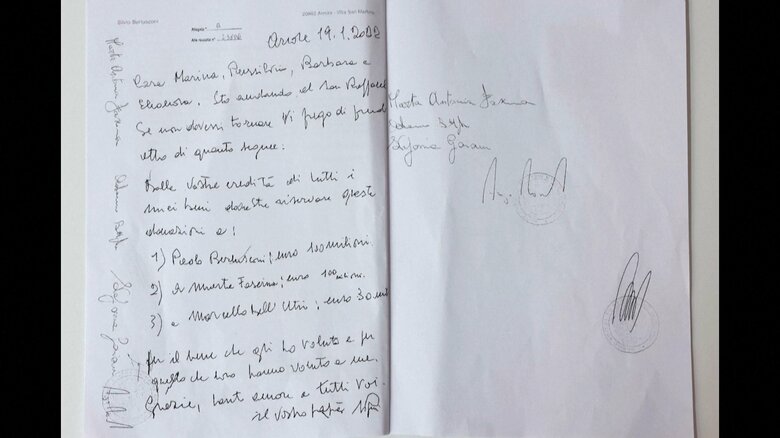 Silvio Berlusconi
20862 Arcore - Villa San Martino
Allegato " A
Alla raccolta n°
Arcore 19.1.2022
Cara Marina, Piersilvio, Barbara e
Eleonora, sto andando al San Raffaele
Se non dovessi tornare vi prego di prend
atto di quanto segue:
Dalle vostre eredità di tutti i
miei beni dovreste riservare queste
donazioni a:
1) Paolo Berlusconi; euro 100 milioni.
2) a Marta Fascina; euro 100 milioni.
3) a Marcello Dell'Utri; euro 30 mil
per il bene che gli ho voluto e per
quello che loro hanno voluto a me.
Grazie, tanto amore a tutti voi.
il vostro papà
Marta Antonia Fascina
Marta Antonia Fascina